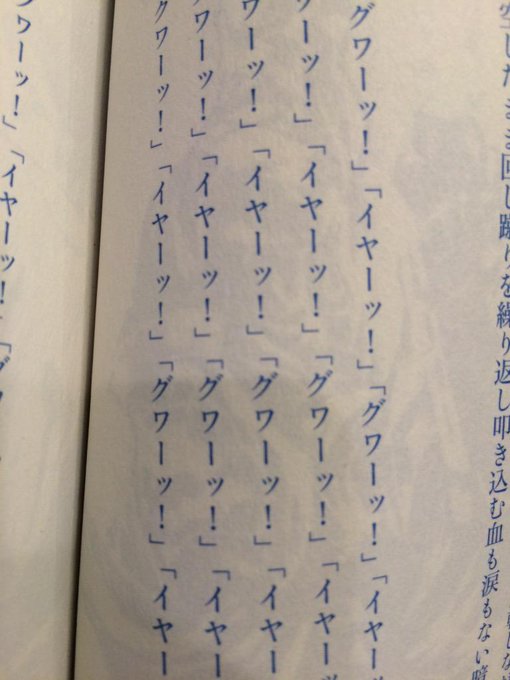 空したまま回し蹴りを繰り返し叩き込む血も涙もない暗
グワーッ!」「イヤーッ!」「グワーッ!」「イヤーッ
ーッ!」「イヤーッ!」「グワーッ!」「イヤーッ
ワーッ!」「イヤーッ!」「グワーッ!」「イヤー
グワーッ!」「イヤーッ!」「グワーッ!」「イヤー
グワーッ!」「イヤーッ!」「グワーッ!」「イヤー
ワーッ!」「イヤーッ!」「グ